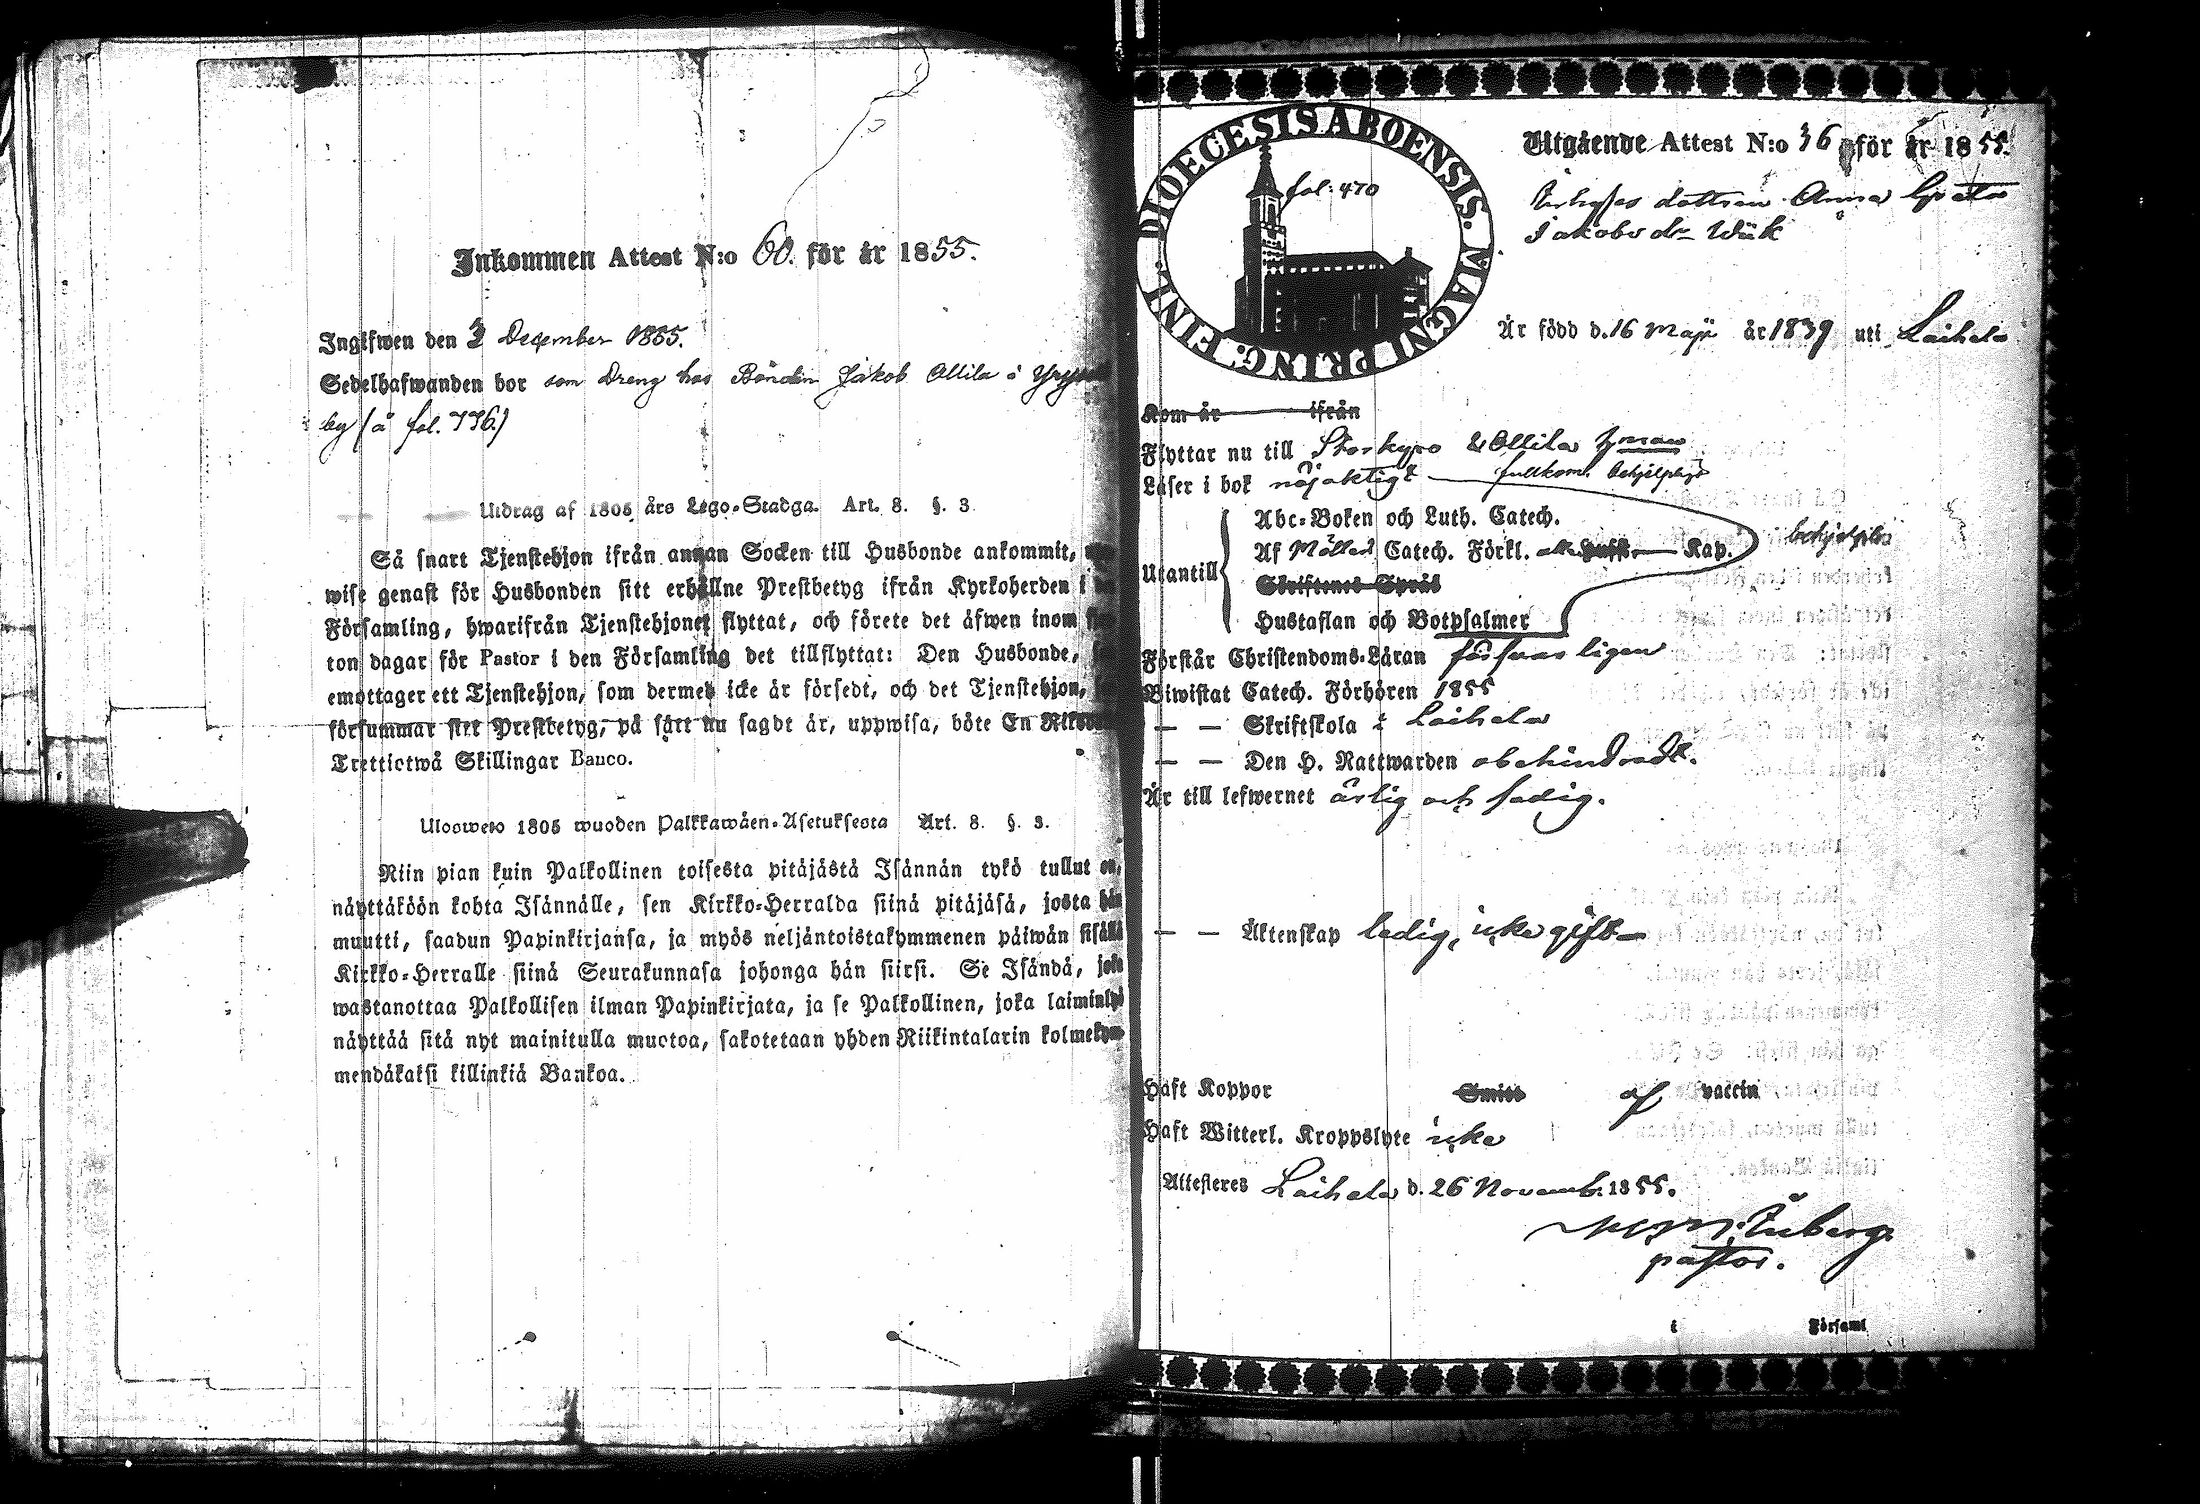 Inkommen Attest N:o 60. för år 1855.
Ingifwen den 3 December 1855.
Sedelhafwanden bor som Dreng hos Bonden Jakob Ollila i
by (å fol. 776.)
Utdrag af 1805 års Lego-Stadga. Art. 8. §. 3.
Så snart Tjenstehjon ifrån annan Socken till Husbonde ankommit,
wise genast för Husbonden sitt erhållne Prestbetyg ifrån Kyrkoherden i
Församling, hwarifrån Tjenstehjonet flyttat, och förete det äfwen inom
ton dagar för Pastor i den Församling det tillflyttat: Den Husbonde,
emottager ett Tjenstehjon, som dermed icke är försedt, och det Tjenstehjon,
försummar sitt Prestbetyg, på sätt nu sagdt är, uppwisa, böte En
Trettiotwå Skillingar Banco.
Ulosweto 1805 wuoden Palkkawäen-Asetuksesta Art. 8. §. 3.
Niin pian kuin Palkollinen toisesta pitäjästä Isännän tykö tullut on,
näyttäköön kohta Isännälle, sen Kirkko-Herralda siinä pitäjäsä, josta hän
muutti, saadun Papinkirjansa, ja myös neljäntoistakymmenen päiwän sisällä
Kirkko-Herralle siinä Seurakunnasa johonga hän siirsi. Se Isändä, joka
wastanottaa Palkollisen ilman Papinkirjata, ja se Palkollinen, joka laiminlyö
näyttää sitä nyt mainitulla muotoa, sakotetaan yhden Riikintalarin kolmekym
mendäkaksi killinkiä Bankoa.
DIOECESIS ABOENSIS. MAGNI PRINC. FINL.
fol: 470
Utgående Attest N:o 36 för år 1855.
dottren Anna Greta
Jakobsdr
Är född d. 16 Maji år 1839 uti Laihela
Kom år ifrån
Flyttar nu till Storkyro & Ollila
Läser i bok nöjaktigt fullkom.
Utantill
Abc-Boken och Luth. Catech.
Af Catech. Förkl. Kap.
Skriftenes Språk
Hustaflan och Botpsalmer
Förstår Christendoms-Läran försvarligen
Biwistat Catech. Förhören 1855
— — Skriftskola i Laihela
— — Den H. Nattwarden obehindradt.
Är till lefwernet ärlig och sedig.
— — Äktenskap ledig, icke gift
Haft Koppor Smitt af vaccin
Haft Witterl. Kroppslyte icke
Attesteres Laihela d. 26 Novemb. 1855.
pastor.
i Församl